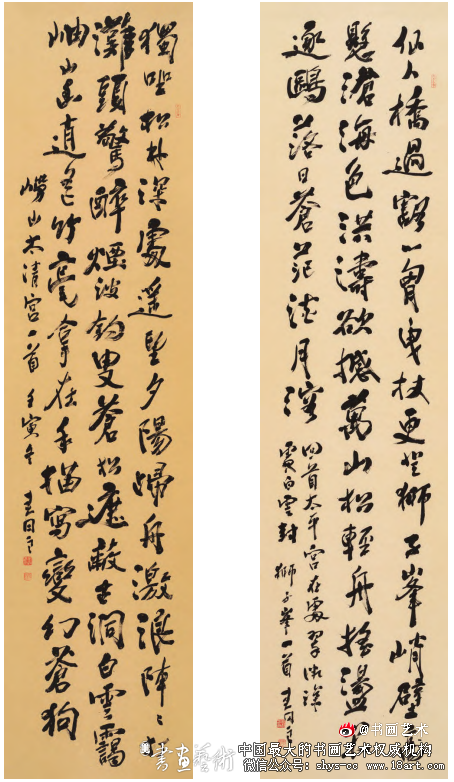 仙人橋過豁心胸曳杖更登獅子峯峭壁高
懸滄海色洪濤欲撼萬山松輕舟搖盪
逐鷗落日蒼茫淡月溶
回首太平宮在處翠微深
白雲封 獅子峯一首
獨坐松林深處遙望夕陽歸舟激浪陣〻打
灘頭驚醉煙波釣叟蒼松遮蔽古洞白雲靄
岫山幽竹毫拿在手描寫變幻蒼狗
嶗山太清宮一首 壬寅冬
書畫藝術
@书画艺术
中国最大的书画艺术权威机构
微信公众号：shys-cc 上的：www.18art.com